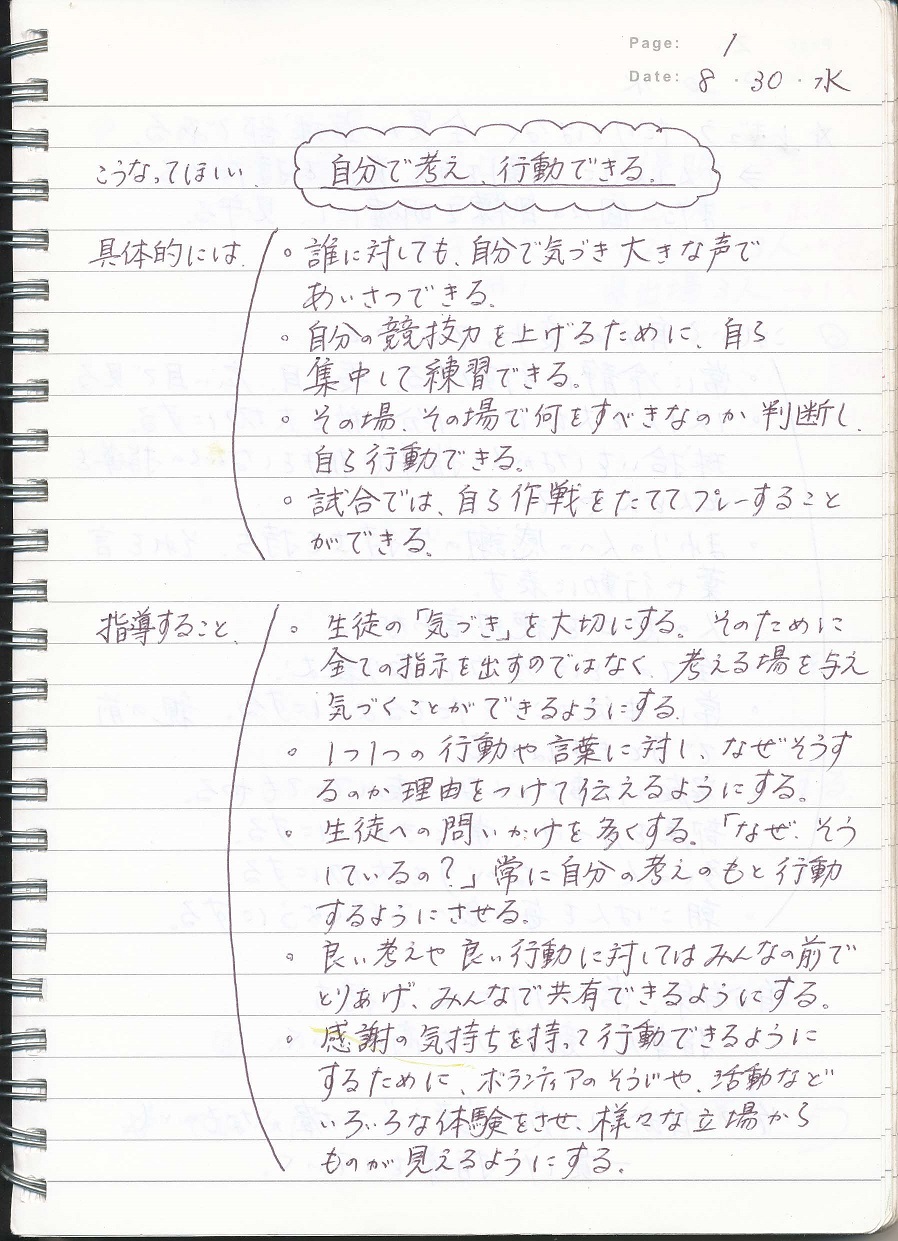 Page: 1
Date: 8・30・水
こうなってほしい. 自分で考え、行動できる.
具体的には. 。誰に対しても、自分で気づき大きな声で
あいさつできる.
。自分の競技力を上げるために、自ら
集中して練習できる。
。その場、その場で何をすべきなのか判断し、
自ら行動できる。
。試合では、自ら作戦をたててプレーすること
ができる.
指導すること、 。生徒の「気づき」を大切にする。そのために
全ての指示を出すのではなく、考える場を与え
気づくことができるようにする.
。1つ1つの行動や言葉に対し、なぜそうす
るのか理由をつけて伝えるようにする。
。生徒への問いかけを多くする。「なぜ、そう
しているの?」常に自分の考えのもと行動
するようにさせる.
。良い考えや良い行動に対してはみんなの前で
とりあげ、みんなで共有できるようにする。
。感謝の気持ちを持って行動できるように
するために、ボランティアのそうじや、活動など
いろいろな体験をさせ、様々な立場から
ものが見えるようにする.